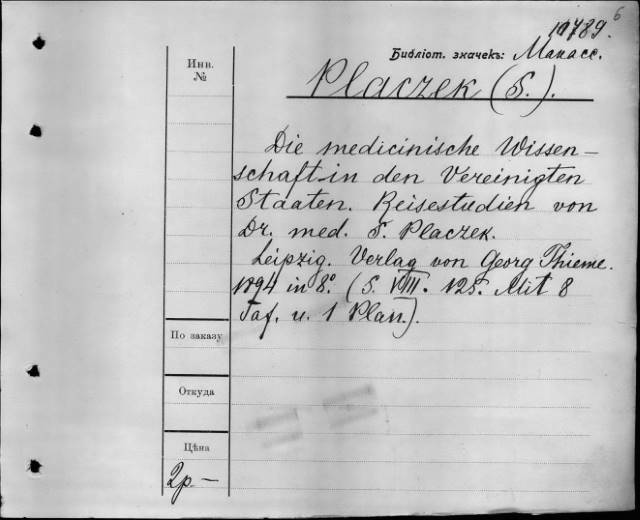 6
10789.
Библіот. значекъ: Манасс.
Инв.
№
Placzek (S.).
Die medicinische Wissen-
schaft in den Vereinigten
Staaten. Reisestudien von
Dr. med. S. Placzek.
Leipzig. Verlag von Georg Thieme.
1894 in 8°. (S. VIII. 125. Mit 8
Taf. u. 1 Plan.).
По заказу
Откуда
Цѣна
2р —